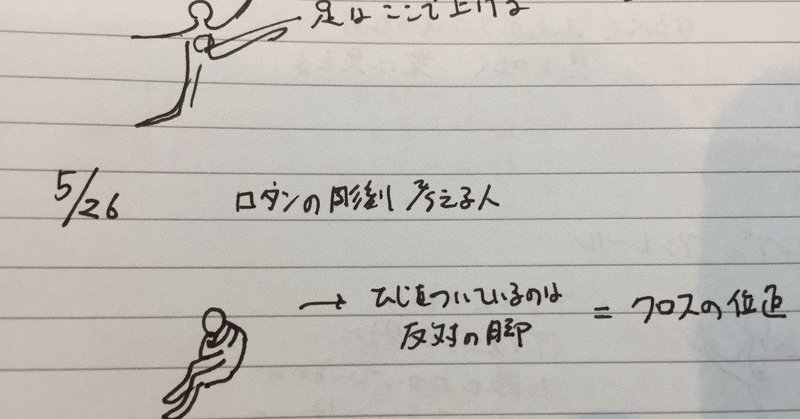 足はここで上げる
5/26 ロダンの彫刻 考える人
→ ひじをついているのは
反対の脚 = クロスの位置